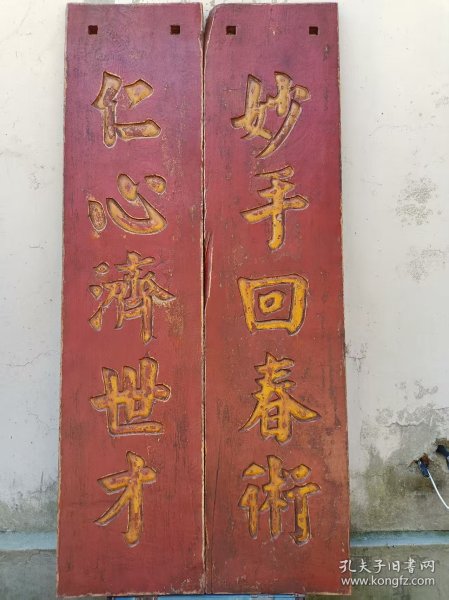 妙手回春術
仁心濟世才
孔夫子旧书网
www.kongfz.com